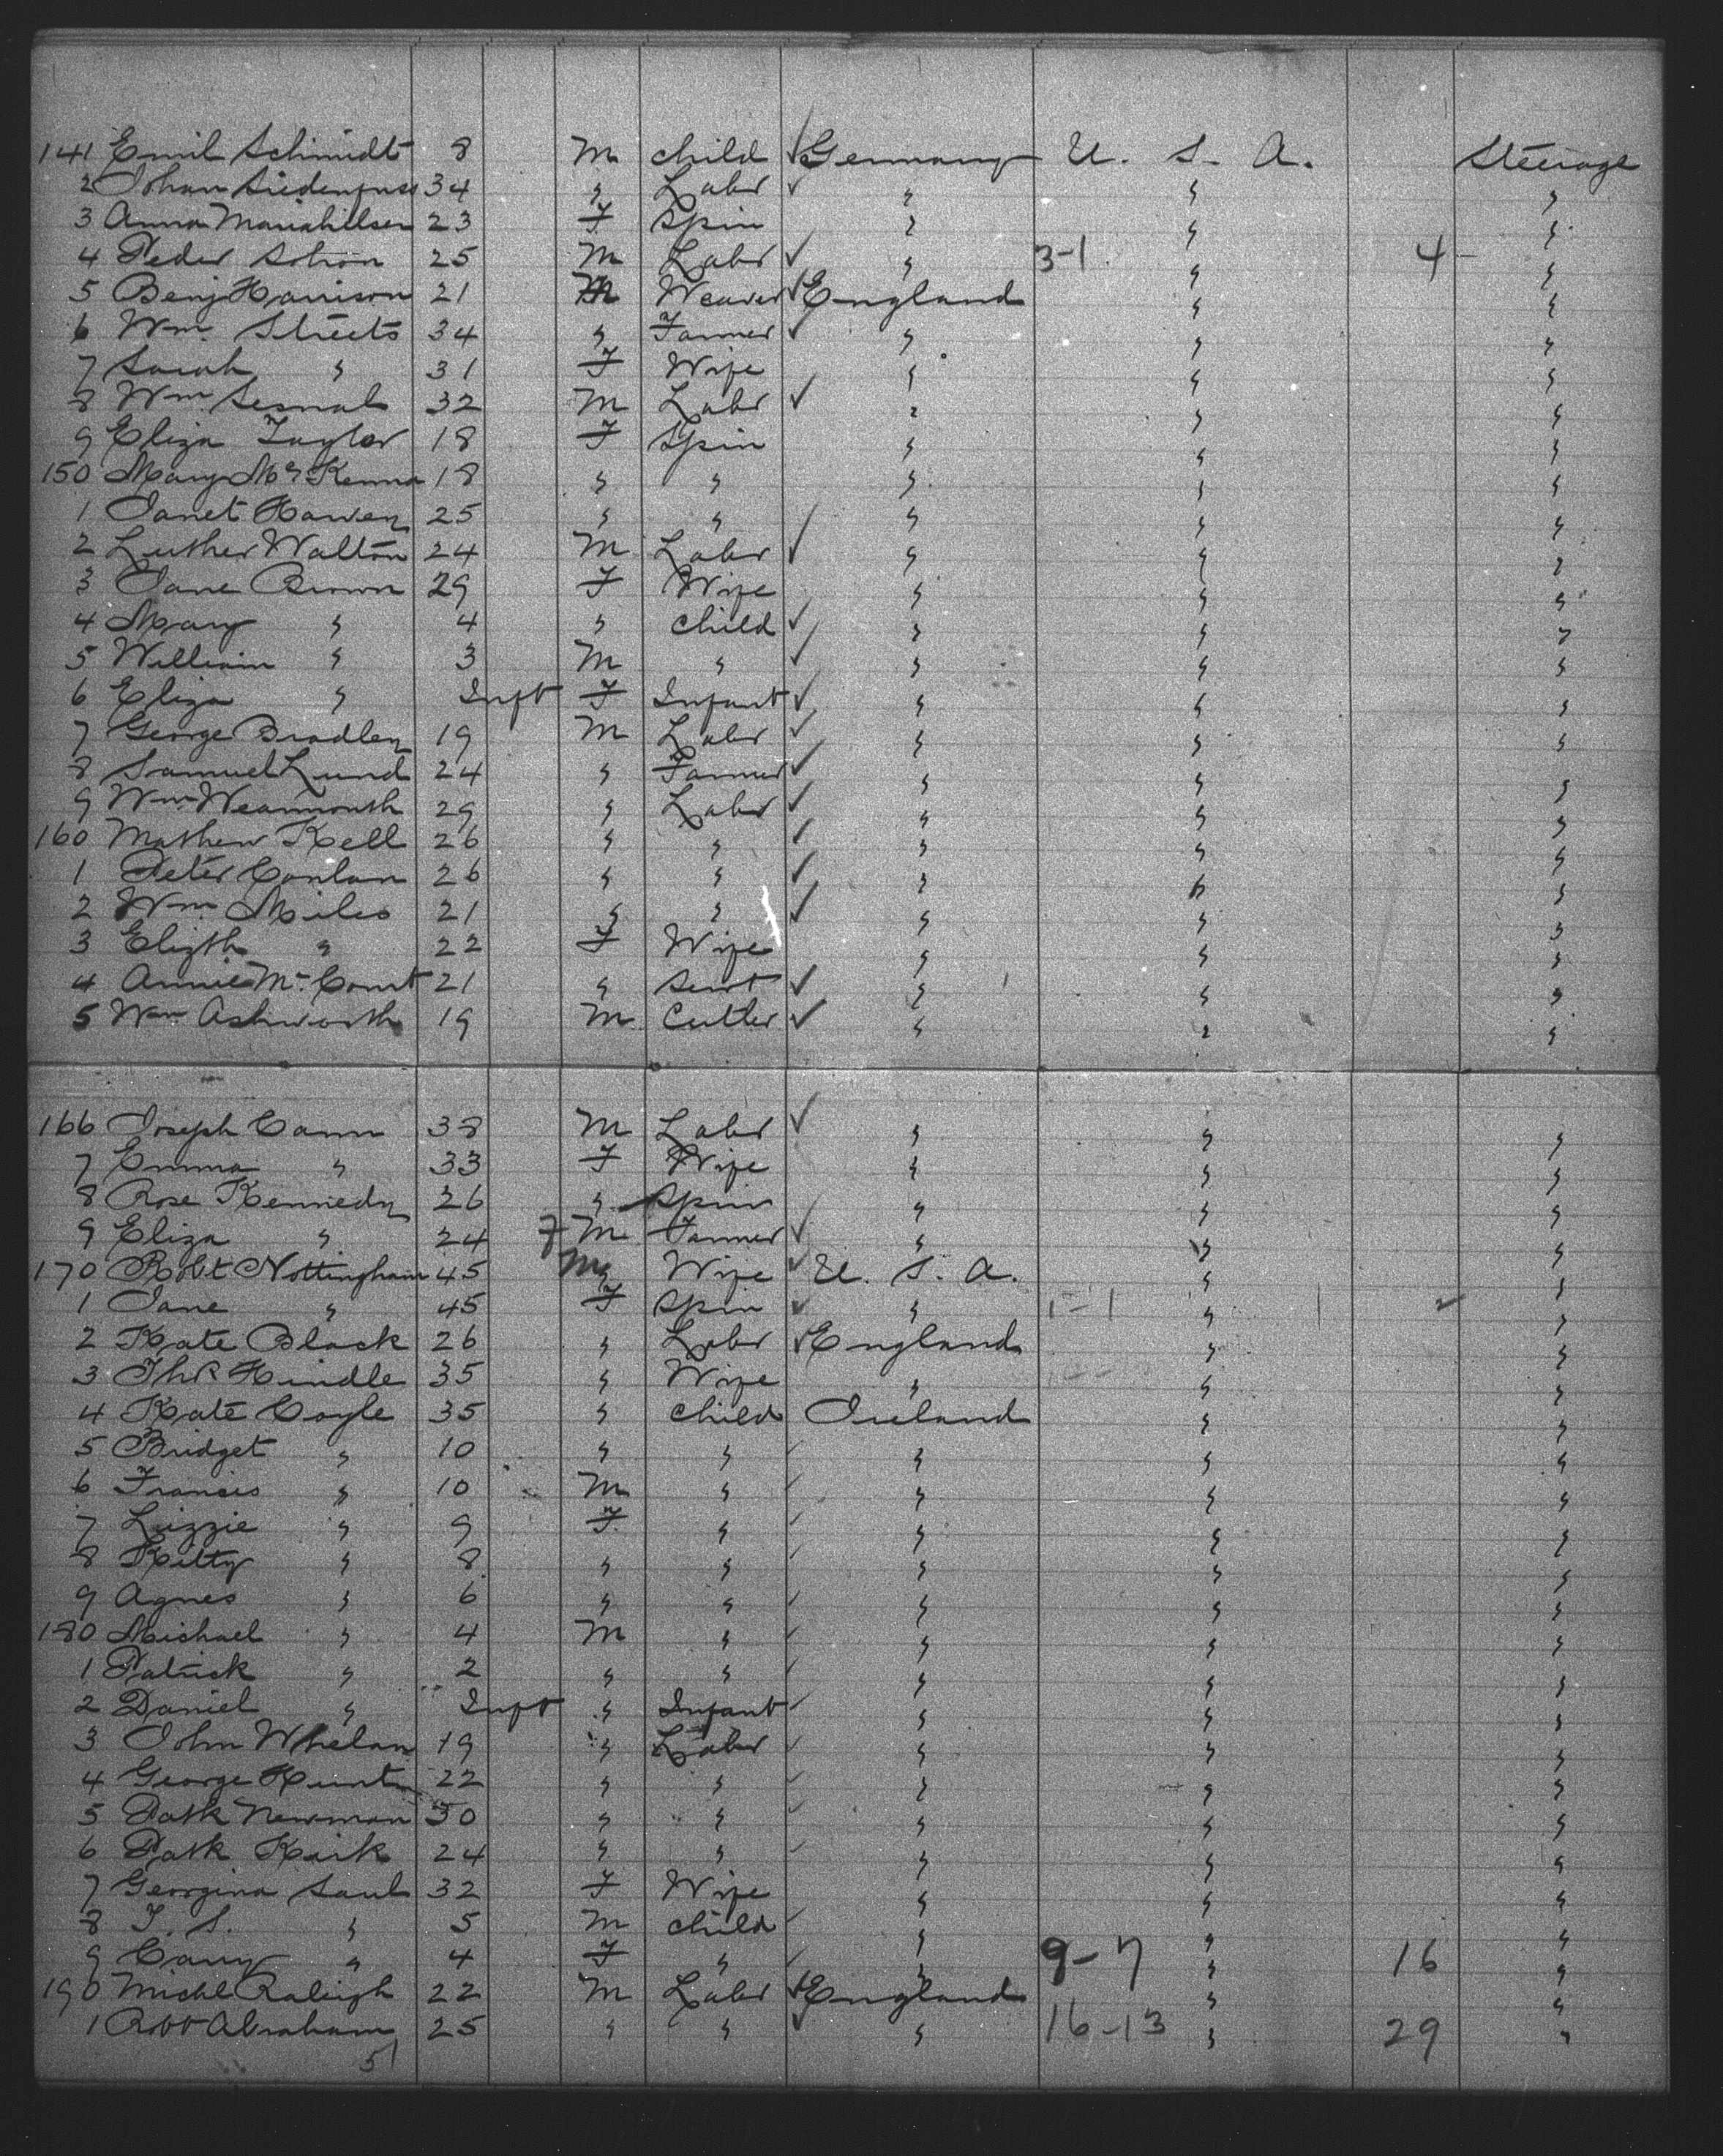 141 Emil Schmidt 8 M child ✓ Germany U. S. A. Steerage
2 Johan 34 " Labr ✓ " " "
3 Anna 23 F Spin " " "
4 Peder Schon 25 M Labr ✓ " 3-1 " 4 "
5 Benj Harrison 21 M Weaver ✓ England " "
6 Wm Streets 34 " Farmer ✓ " " "
7 Sarah " 31 F Wife " " "
8 Wm 32 M Labr ✓ " " "
9 Eliza Taylor 18 F Spin " " "
150 Mary McKenna 18 " " " " "
1 Janet 25 " " " " "
2 Luther Walton 24 M Labr ✓ " " "
3 Jane Brown 29 F Wife " " "
4 Mary " 4 " child ✓ " " "
5 William " 3 M " ✓ " " "
6 Eliza " Inft F Infant ✓ " " "
7 George Bradley 19 M Labr ✓ " " "
8 Samuel Lund 24 " Farmer ✓ " " "
9 Wm Wearmouth 29 " Labr ✓ " " "
160 Mathew Kell 26 " " ✓ " " "
1 Peter Conlan 26 " " ✓ " " "
2 Wm Miles 21 " " ✓ " " "
3 Elizth " 22 F Wife " " "
4 Annie McCourt 21 " Servt ✓ " " "
5 Wm Ashworth 19 M Cutler ✓ " " "
166 Joseph Cann 38 M Labr ✓ " " "
7 Emma " 33 F Wife " " "
8 Rose Kennedy 26 " Spin " " "
9 Eliza " 24 F M Farmer ✓ " " "
170 Robt Nottingham 45 M " Wife ✓ U. S. A. " "
1 Jane " 45 F Spin ✓ " 1-1 " ✓ "
2 Kate Black 26 " Labr ✓ England " "
3 Hindle 35 " Wife " " "
4 Kate Coyle 35 " child Ireland " "
5 Bridget " 10 " " ✓ " " "
6 Francis " 10 M " ✓ " " "
7 Lizzie " 9 F " ✓ " " "
8 Kitty " 8 " " ✓ " " "
9 Agnes " 6 " " ✓ " " "
180 Michael " 4 M " ✓ " " "
1 Patrick " 2 " " ✓ " " "
2 Daniel " Inft " Infant ✓ " " "
3 John Whelan 19 " Labr ✓ " " "
4 George Hunt 22 " " ✓ " " "
5 Patk Newman 30 " " ✓ " " "
6 Patk Kirk 24 " " ✓ " " "
7 Georgina Saul 32 F Wife " " "
8 T. S. " 5 M child ✓ " " "
9 " 4 F " ✓ " 9-7 " 16 "
190 Michl Raleigh 22 M Labr ✓ England " "
1 Robt Abraham 25 " " ✓ " 16-13 " 29 "
51